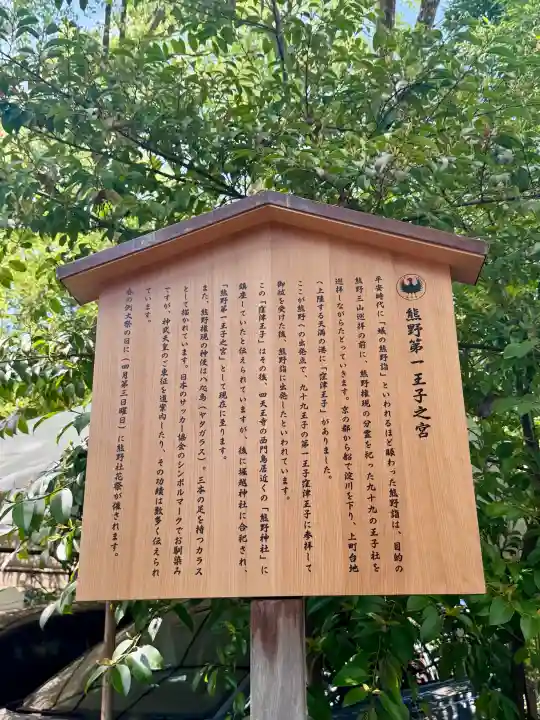 熊野第一王子之宮
平安時代に「蟻の熊野詣」といわれるほど賑わった熊野詣は、目的の
熊野三山巡拝の前に、熊野権現の分霊を祀った九十九の王子社を
巡拝しながらたどっていきます。京の都から船で淀川を下り、上町台地
へ上陸する天満の港に「窪津王子」がありました。
ここが熊野への出発点で、九十九王子の第一王子窪津王子に参拝して
御紋を受けた後、熊野詣に出発したといわれています。
この「窪津王子」はその後、四天王寺の西門鳥居近くの「熊野神社」に
鎮座していたと伝えられていますが、後に堀越神社に合祀され、
「熊野第一王子之宮」として現在に至ります。
また、熊野権現の神使は八咫烏（ヤタガラス）。三本の足を持つカラス
として描かれています。日本のサッカー協会のシンボルマークでお馴染み
ですが、神武天皇のご東征を道案内したり、その功績は数多く伝えられ
ています。
春の例大祭の日に（四月第三日曜日）に熊野社花祭が催されます。